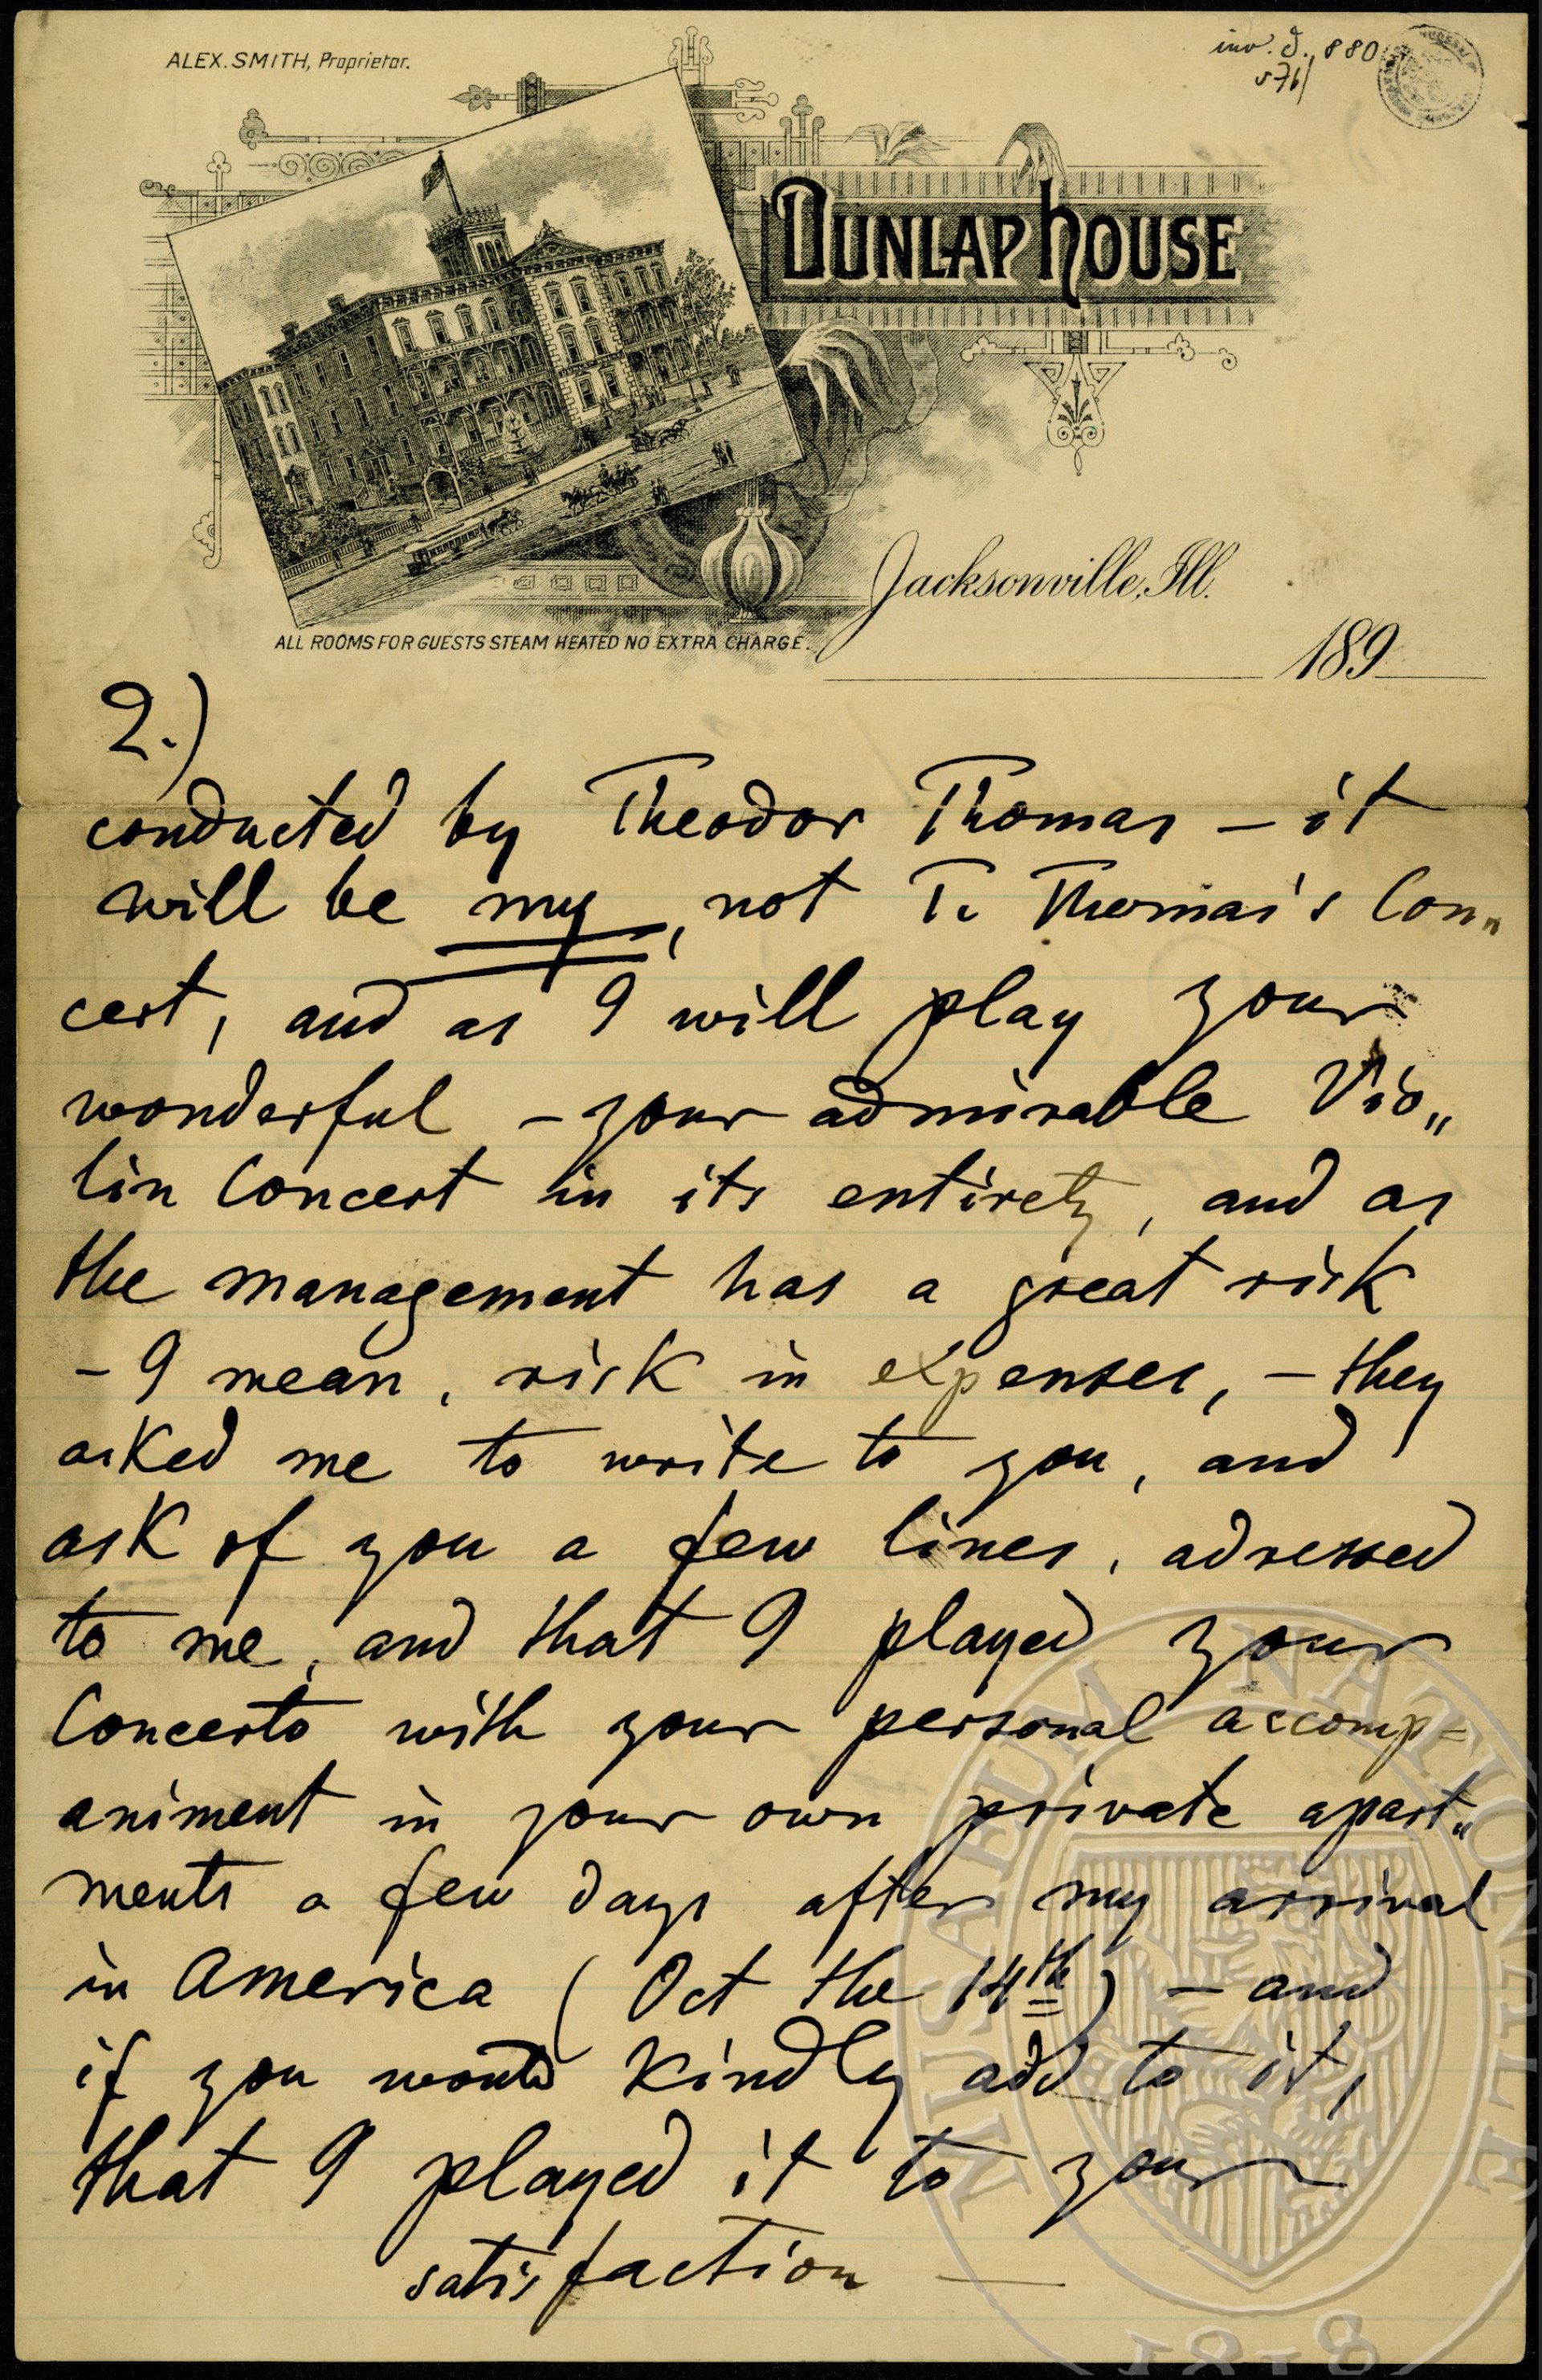 ALEX. SMITH, Proprietor.
inv. č. 880
576/
DUNLAP HOUSE
Jacksonville, Ill.
ALL ROOMS FOR GUESTS STEAM HEATED NO EXTRA CHARGE.
189
2.)
conducted by Theodor Thomas – it
will be my, not T. Thomas's Con„
cert, and as I will play your
wonderful – your admirable Vio„
lin Concert in its entirety, and as
the management has a great risk
– I mean, risk in expenses, – they
asked me to write to you, and
ask of you a few lines, adressed
to me, and that I played your
Concerto with your personal accomp=
animent in your own private apart„
ments a few days after my arrival
in America (Oct the 14th) – and
if you would kindly add to it,
that I played it to your
satisfaction —
MUSAEUM NATIONALE
1818